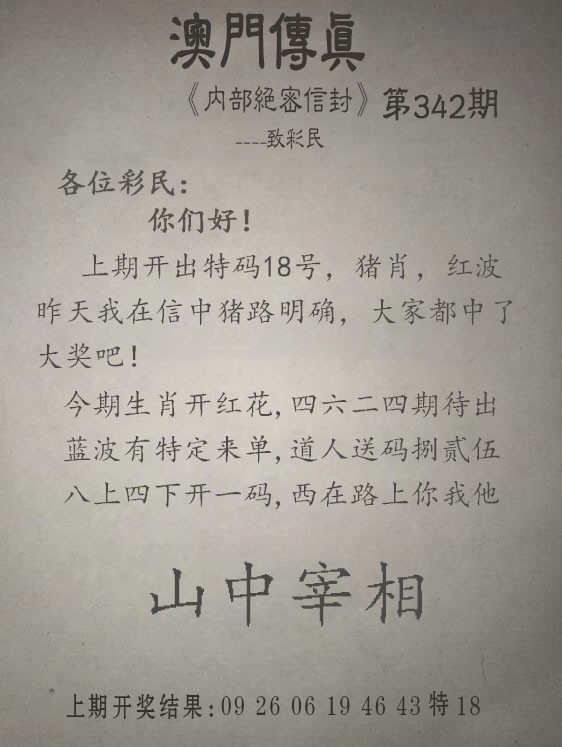 澳門傳眞
《内部絕密信封》第342期
----致彩民
各位彩民:
你们好!
上期开出特码18号,猪肖,红波
昨天我在信中猪路明确,大家都中了
大奖吧!
今期生肖开红花,四六二四期待出
蓝波有特定来单,道人送码捌贰伍
八上四下开一码,西在路上你我他
山中宰相
上期开奖结果:09 26 06 19 46 43 特 18